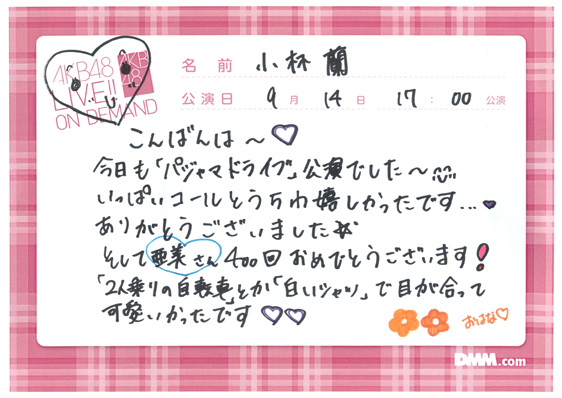 AKB48
LIVE!!
ON DEMAND
AKB
48
名前 小林 蘭
公演日 9月 14日 17:00 公演
こんばんは〜♡
今日も「パジャマドライブ」公演でした〜
いっぱいコールとうちわ嬉しかったです...♥
ありがとうございました
そして亜美さん400回おめでとうございます!
「2人乗りの自転車」とか「白いシャツ」で目が合って
可愛いかったです♡♡
おはな♡
DMM.com